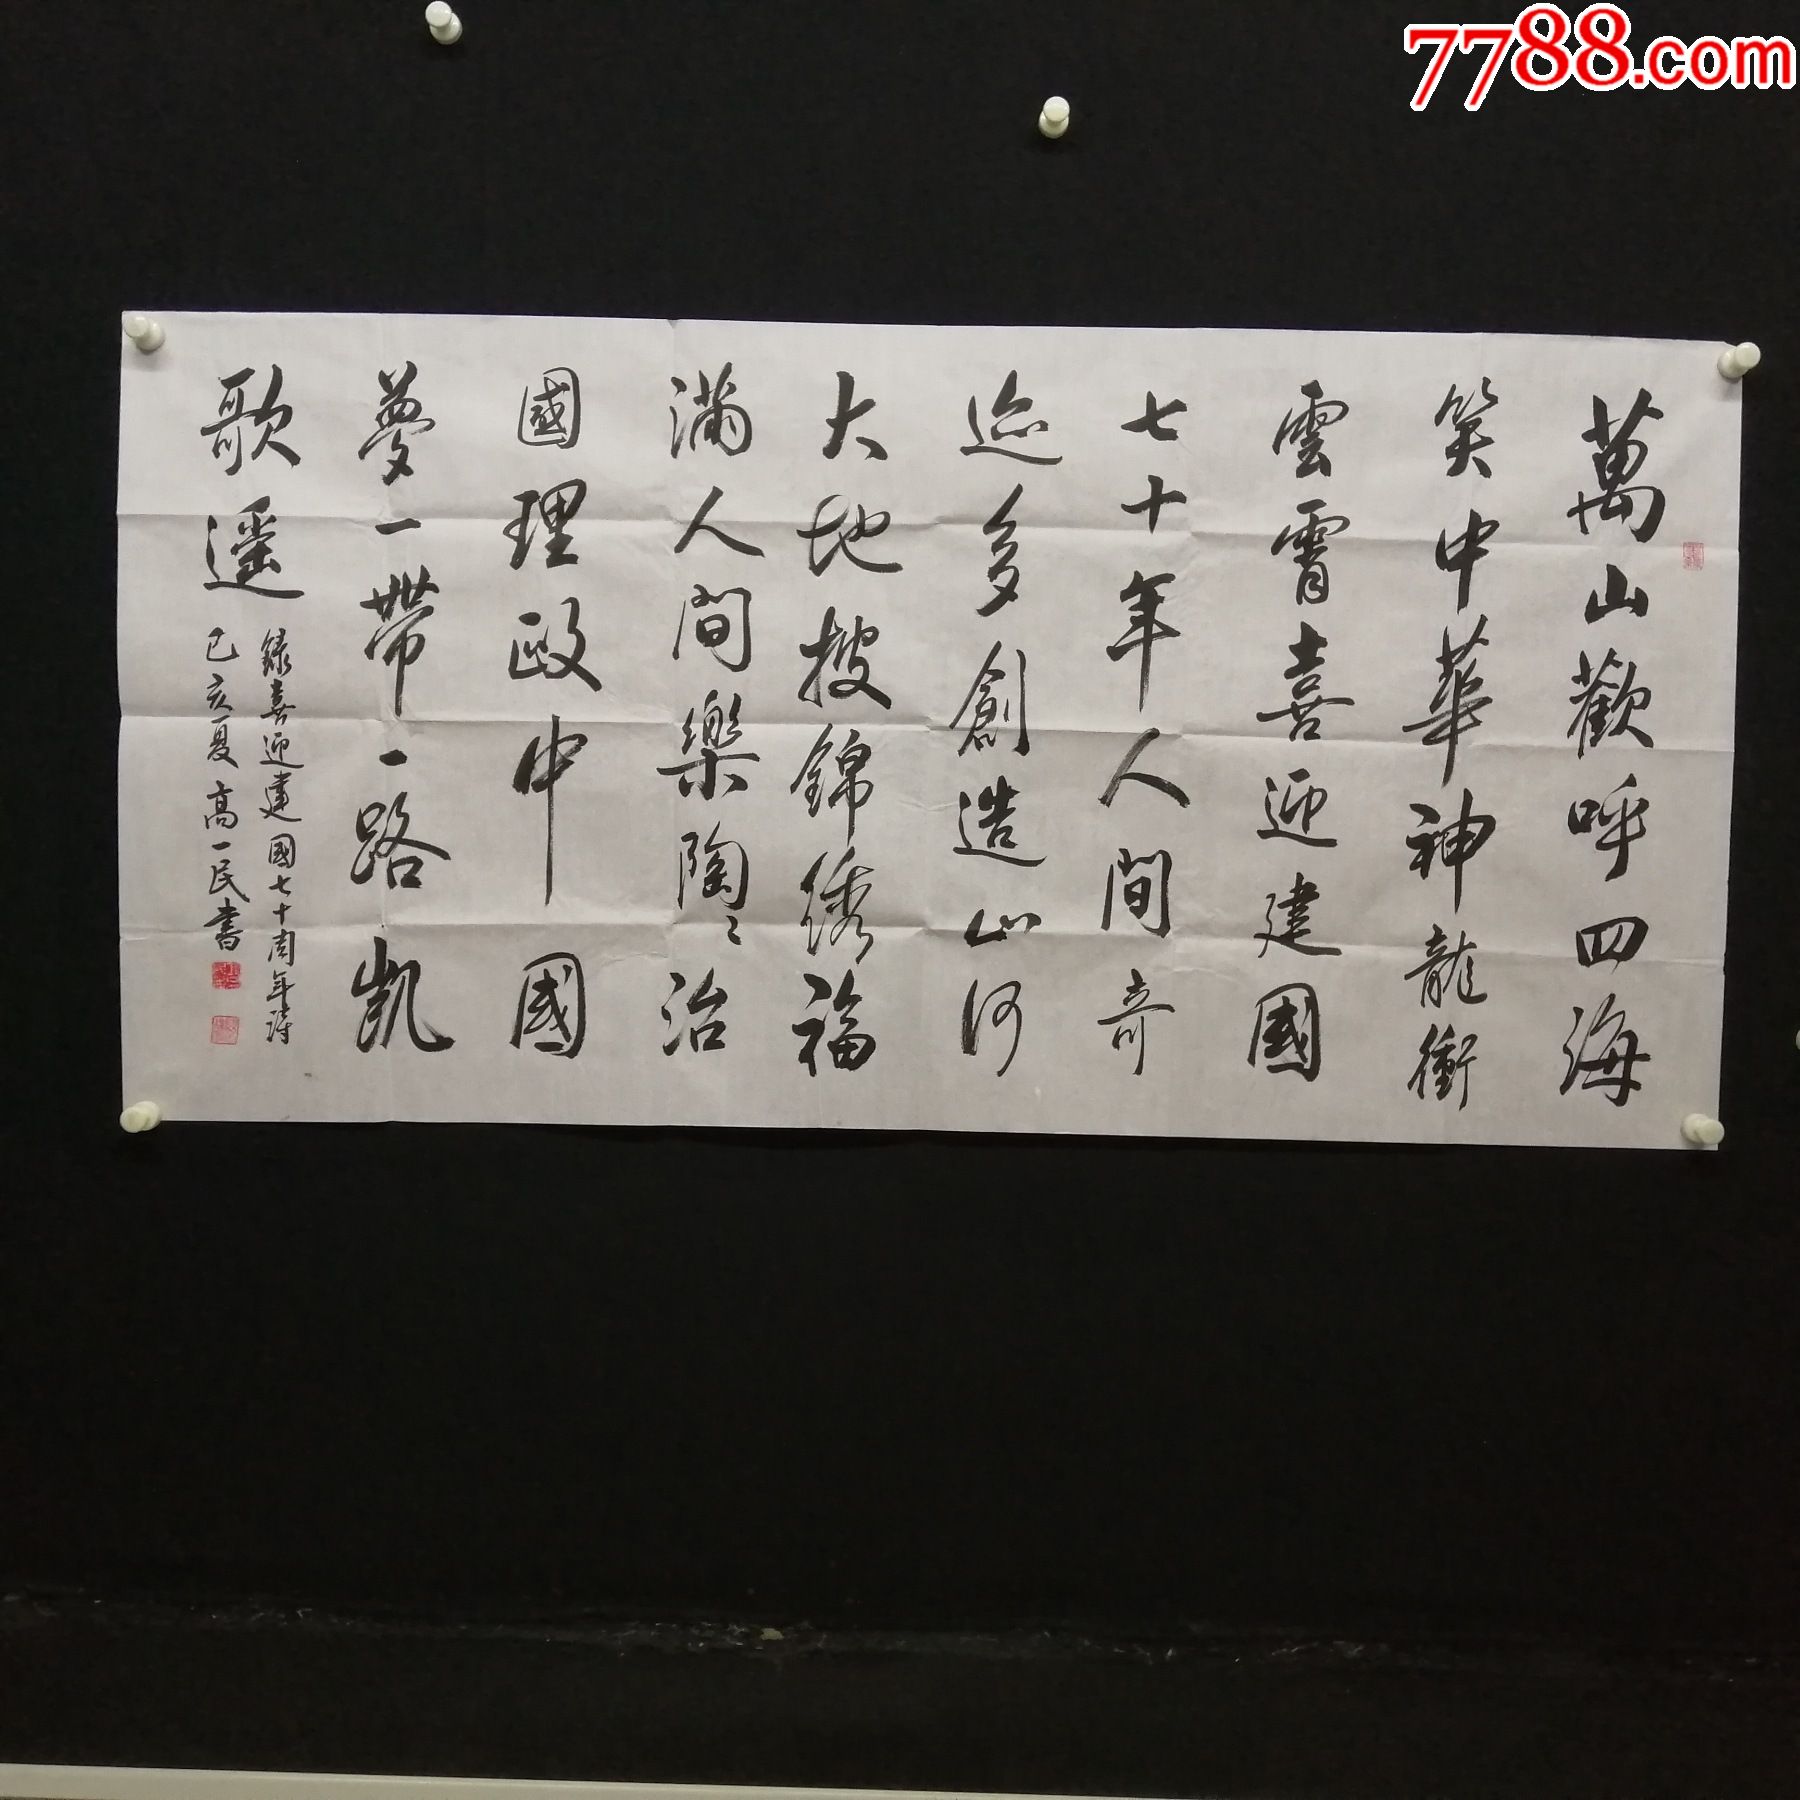 萬山歡呼四海
笑中華神龍衝
雲霄喜迎建國
七十年人間奇
迹多創造山河
大地披錦绣福
滿人間樂陶々治
國理政中國
夢一帶一路凯
歌遥
録喜迎建國七十周年詩
己亥夏高一民書
7788.com